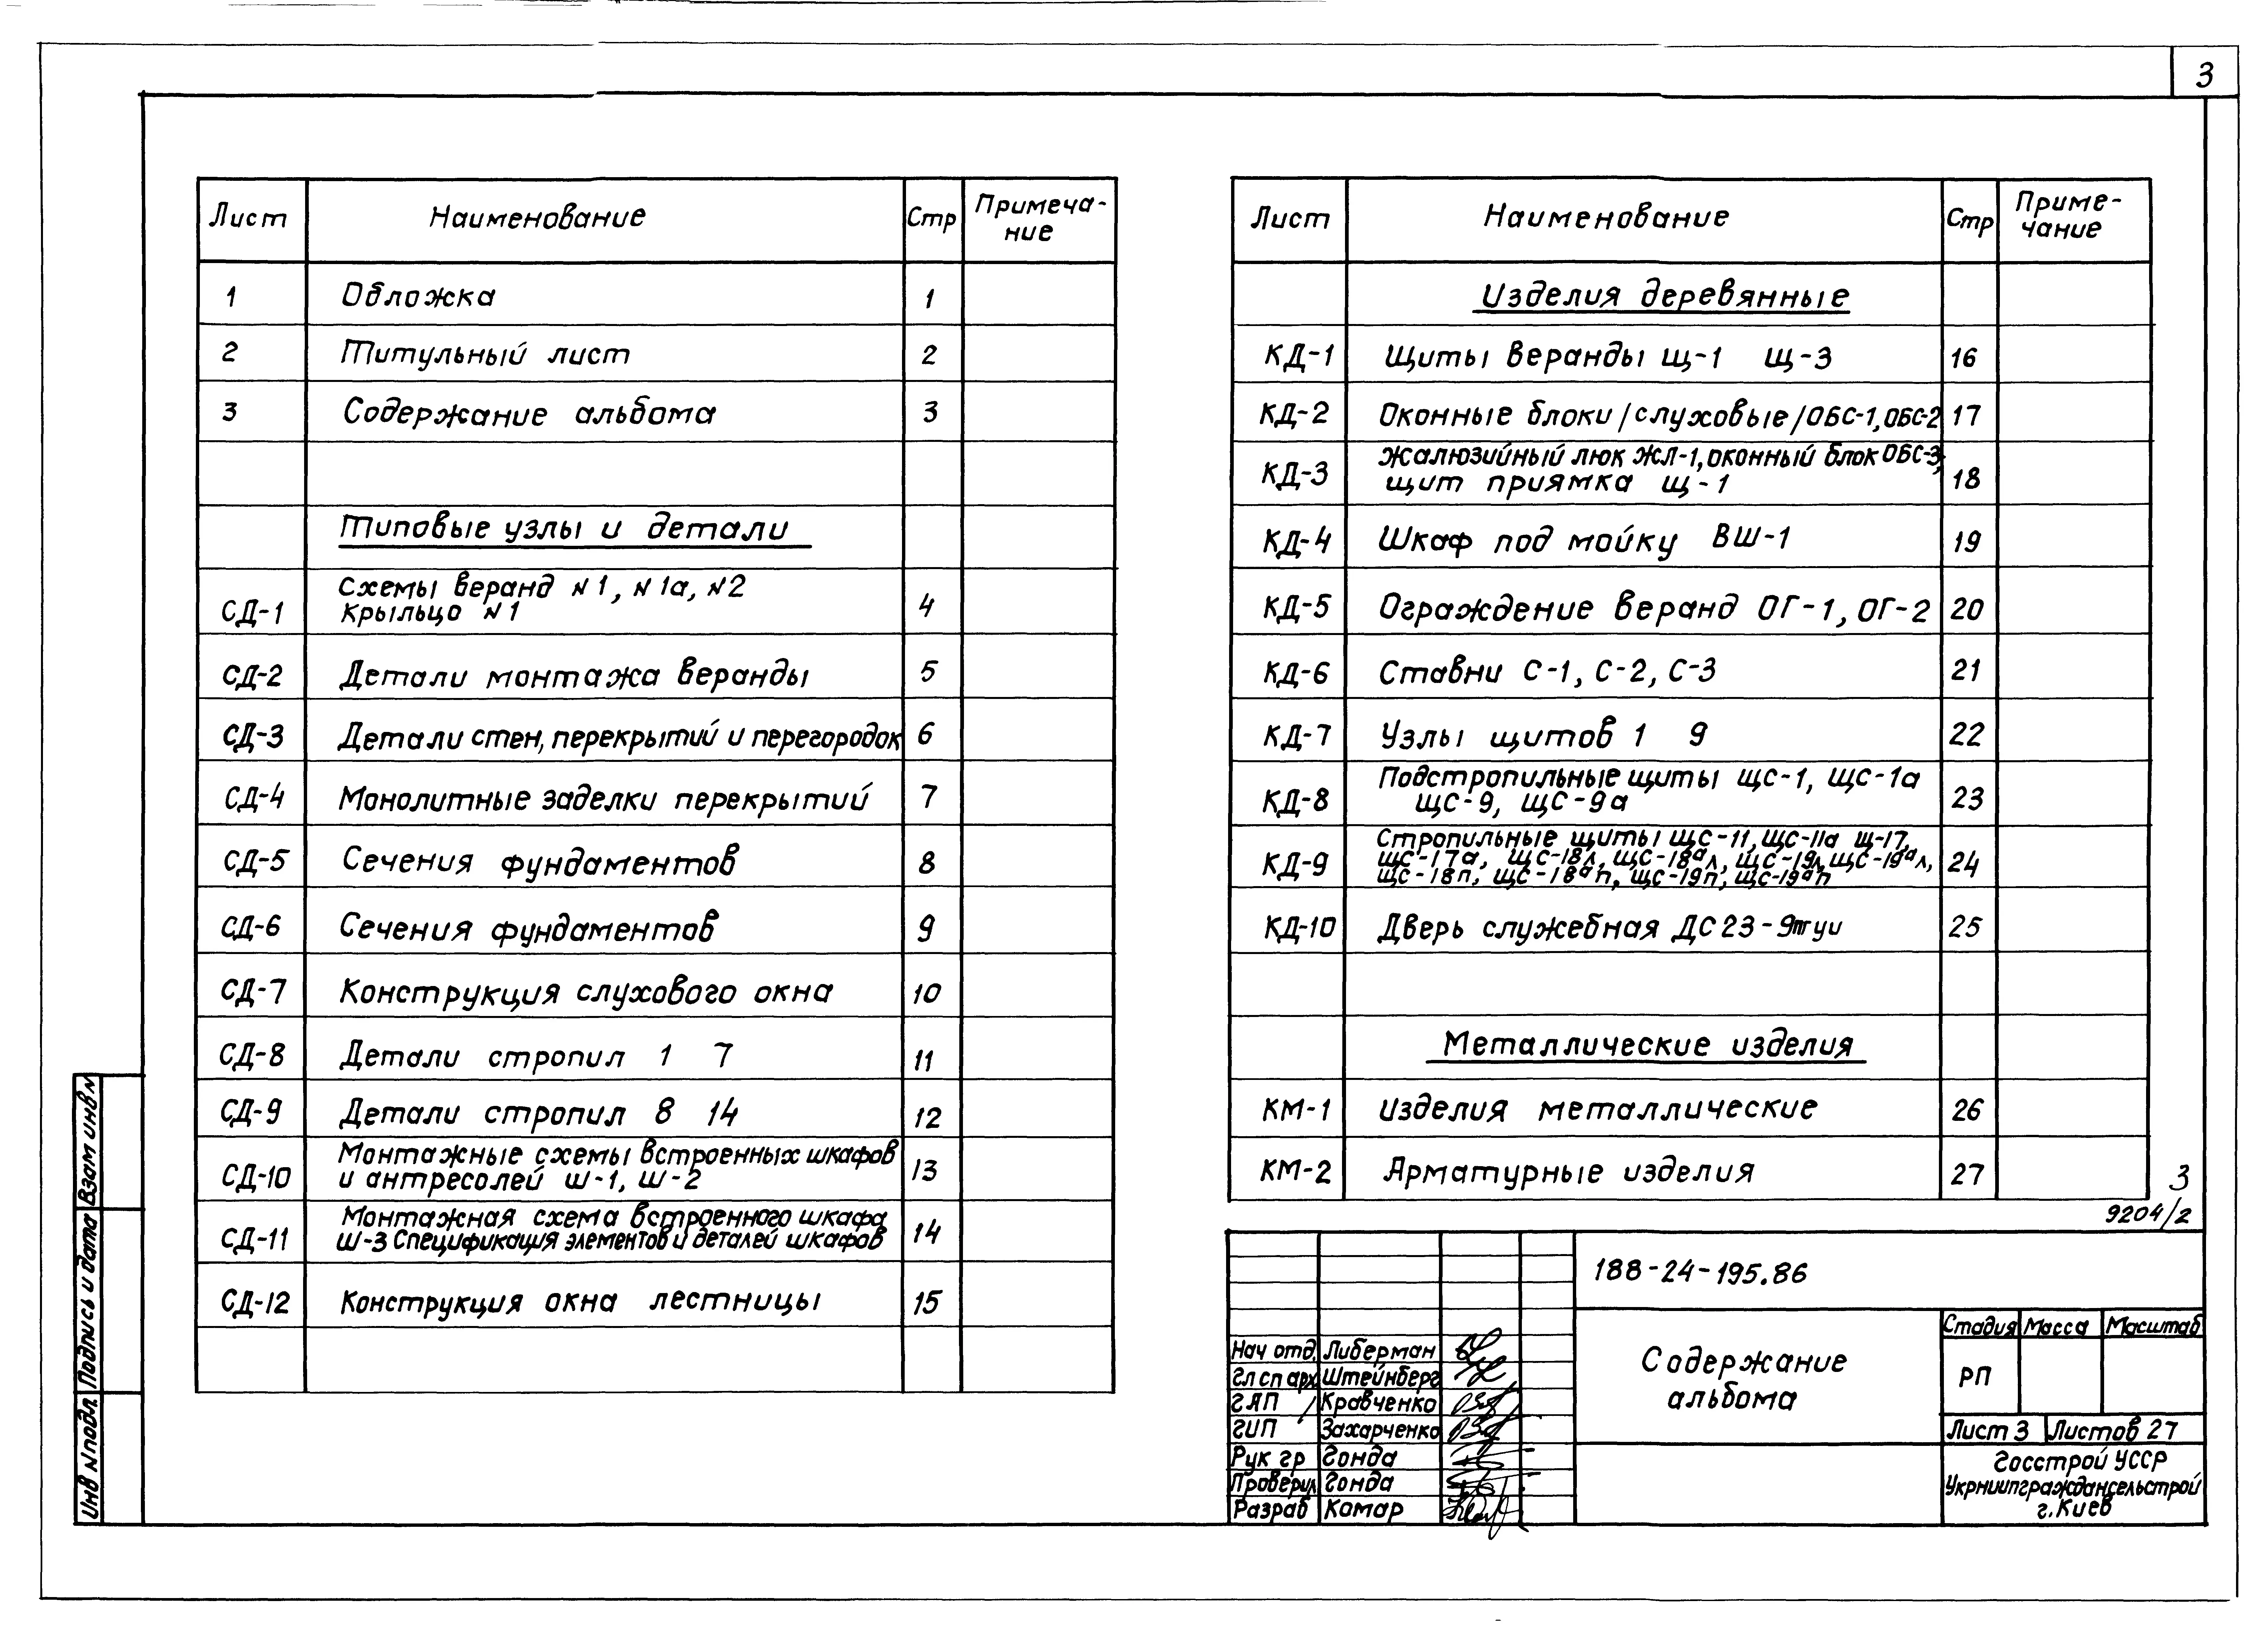 3
Лист Наименование Стр Примеча-
ние
1 Обложка 1
2 Титульный лист 2
3 Содержание альбома 3
Типовые узлы и детали
СД-1 Схемы веранд N1, N1а, N2
Крыльцо N1 4
СД-2 Детали монтажа веранды 5
СД-3 Детали стен, перекрытий и перегородок 6
СД-4 Монолитные заделки перекрытий 7
СД-5 Сечения фундаментов 8
СД-6 Сечения фундаментов 9
СД-7 Конструкция слухового окна 10
СД-8 Детали стропил 1 7 11
СД-9 Детали стропил 8 14 12
СД-10 Монтажные схемы встроенных шкафов
и антресолей Ш-1, Ш-2 13
СД-11 Монтажная схема встроенного шкафа
Ш-3 Спецификация элементов и деталей шкафов 14
СД-12 Конструкция окна лестницы 15
Лист Наименование Стр Приме-
чание
Изделия деревянные
КД-1 Щиты веранды Щ-1 Щ-3 16
КД-2 Оконные блоки /слуховые/ ОБС-1, ОБС-2 17
КД-3 Жалюзийный люк ЖЛ-1, оконный блок ОБС-3,
щит приямка Щ-1 18
КД-4 Шкаф под мойку ВШ-1 19
КД-5 Ограждение веранд ОГ-1, ОГ-2 20
КД-6 Ставни С-1, С-2, С-3 21
КД-7 Узлы щитов 1 9 22
КД-8 Подстропильные щиты ЩС-1, ЩС-1а
ЩС-9, ЩС-9а 23
КД-9 Стропильные щиты ЩС-11, ЩС-11а Щ-17,
ЩС-17а, ЩС-18л, ЩС-18ал, ЩС-19л, ЩС-19ал,
ЩС-18п, ЩС-18ап, ЩС-19п, ЩС-19ап 24
КД-10 Дверь служебная ДС23-9тгуи 25
Металлические изделия
КМ-1 Изделия металлические 26
КМ-2 Арматурные изделия 27
3
9204/2
188-24-195.86
Содержание
альбома
Стадия Масса Масштаб
РП
Лист 3 Листов 27
Госстрой УССР
Укрниипграждансельстрой
г. Киев
Нач отд. Либерман
Гл сп арх Штейнберг
ГАП Кравченко
ГИП Захарченко
Рук гр Гонда
Проверил Гонда
Разраб Комар
Взам инв N
Подпись и дата
Инв N подл.